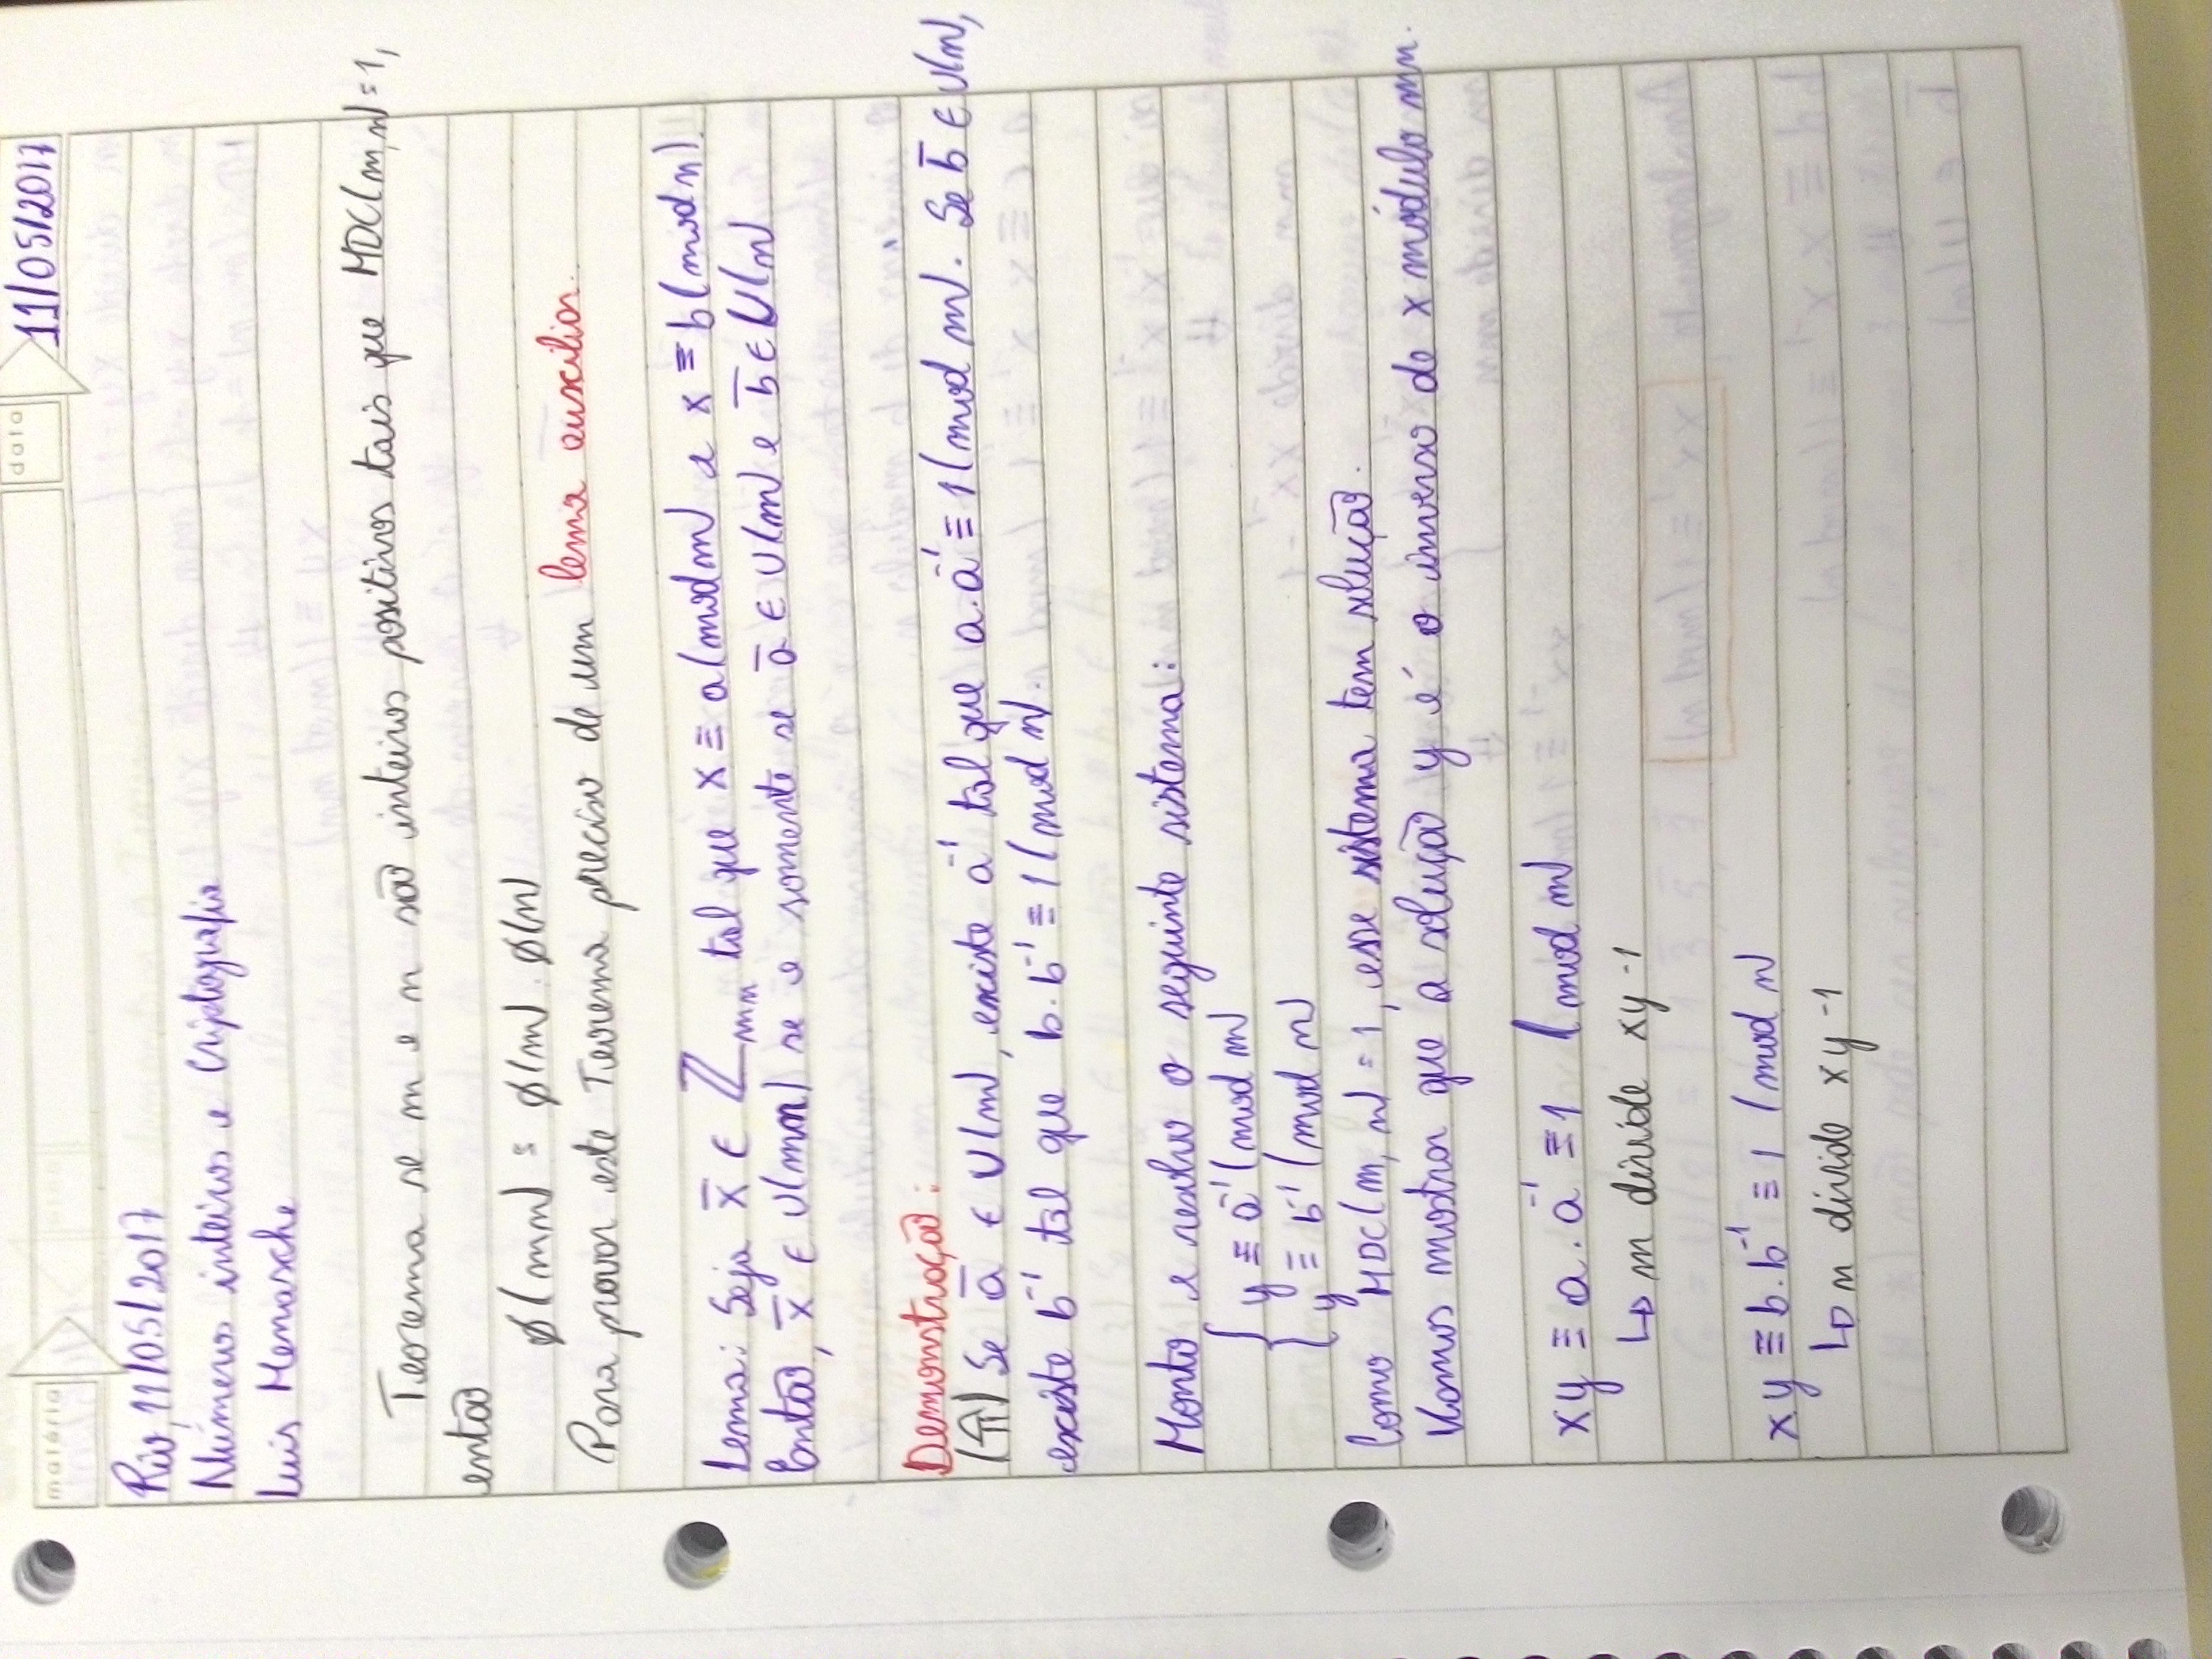 matéria
data
11/05/2017
Rio, 11/05/2017
Números inteiros e Criptografia
Luis Menasche
Teorema se m e n são inteiros positivos tais que MDC(m,n)=1,
então
ϕ(mn) = ϕ(m) . ϕ(n)
Para provar este Teorema preciso de um lema auxiliar.
Lema: Seja x̅ ∈ ℤmn tal que x ≡ a(mod m) e x ≡ b(mod n).
Então, x̅ ∈ U(mn) se e somente se a̅ ∈ U(m) e b̅ ∈ U(n)
Demonstração:
(⇑) Se a̅ ∈ U(m), existe a⁻¹ tal que a.a⁻¹ ≡ 1(mod m). Se b̅ ∈ U(n),
existe b⁻¹ tal que b.b⁻¹ ≡ 1(mod n).
Monto e resolvo o seguinte sistema:
{ y ≡ a⁻¹(mod m)
y ≡ b⁻¹(mod n)
Como MDC(m, n) = 1, esse sistema tem solução.
Vamos mostrar que a solução y é o inverso de x módulo mn.
xy ≡ a.a⁻¹ ≡ 1 (mod m)
↳ m divide xy-1
xy ≡ b.b⁻¹ ≡ 1 (mod n)
↳ n divide xy-1